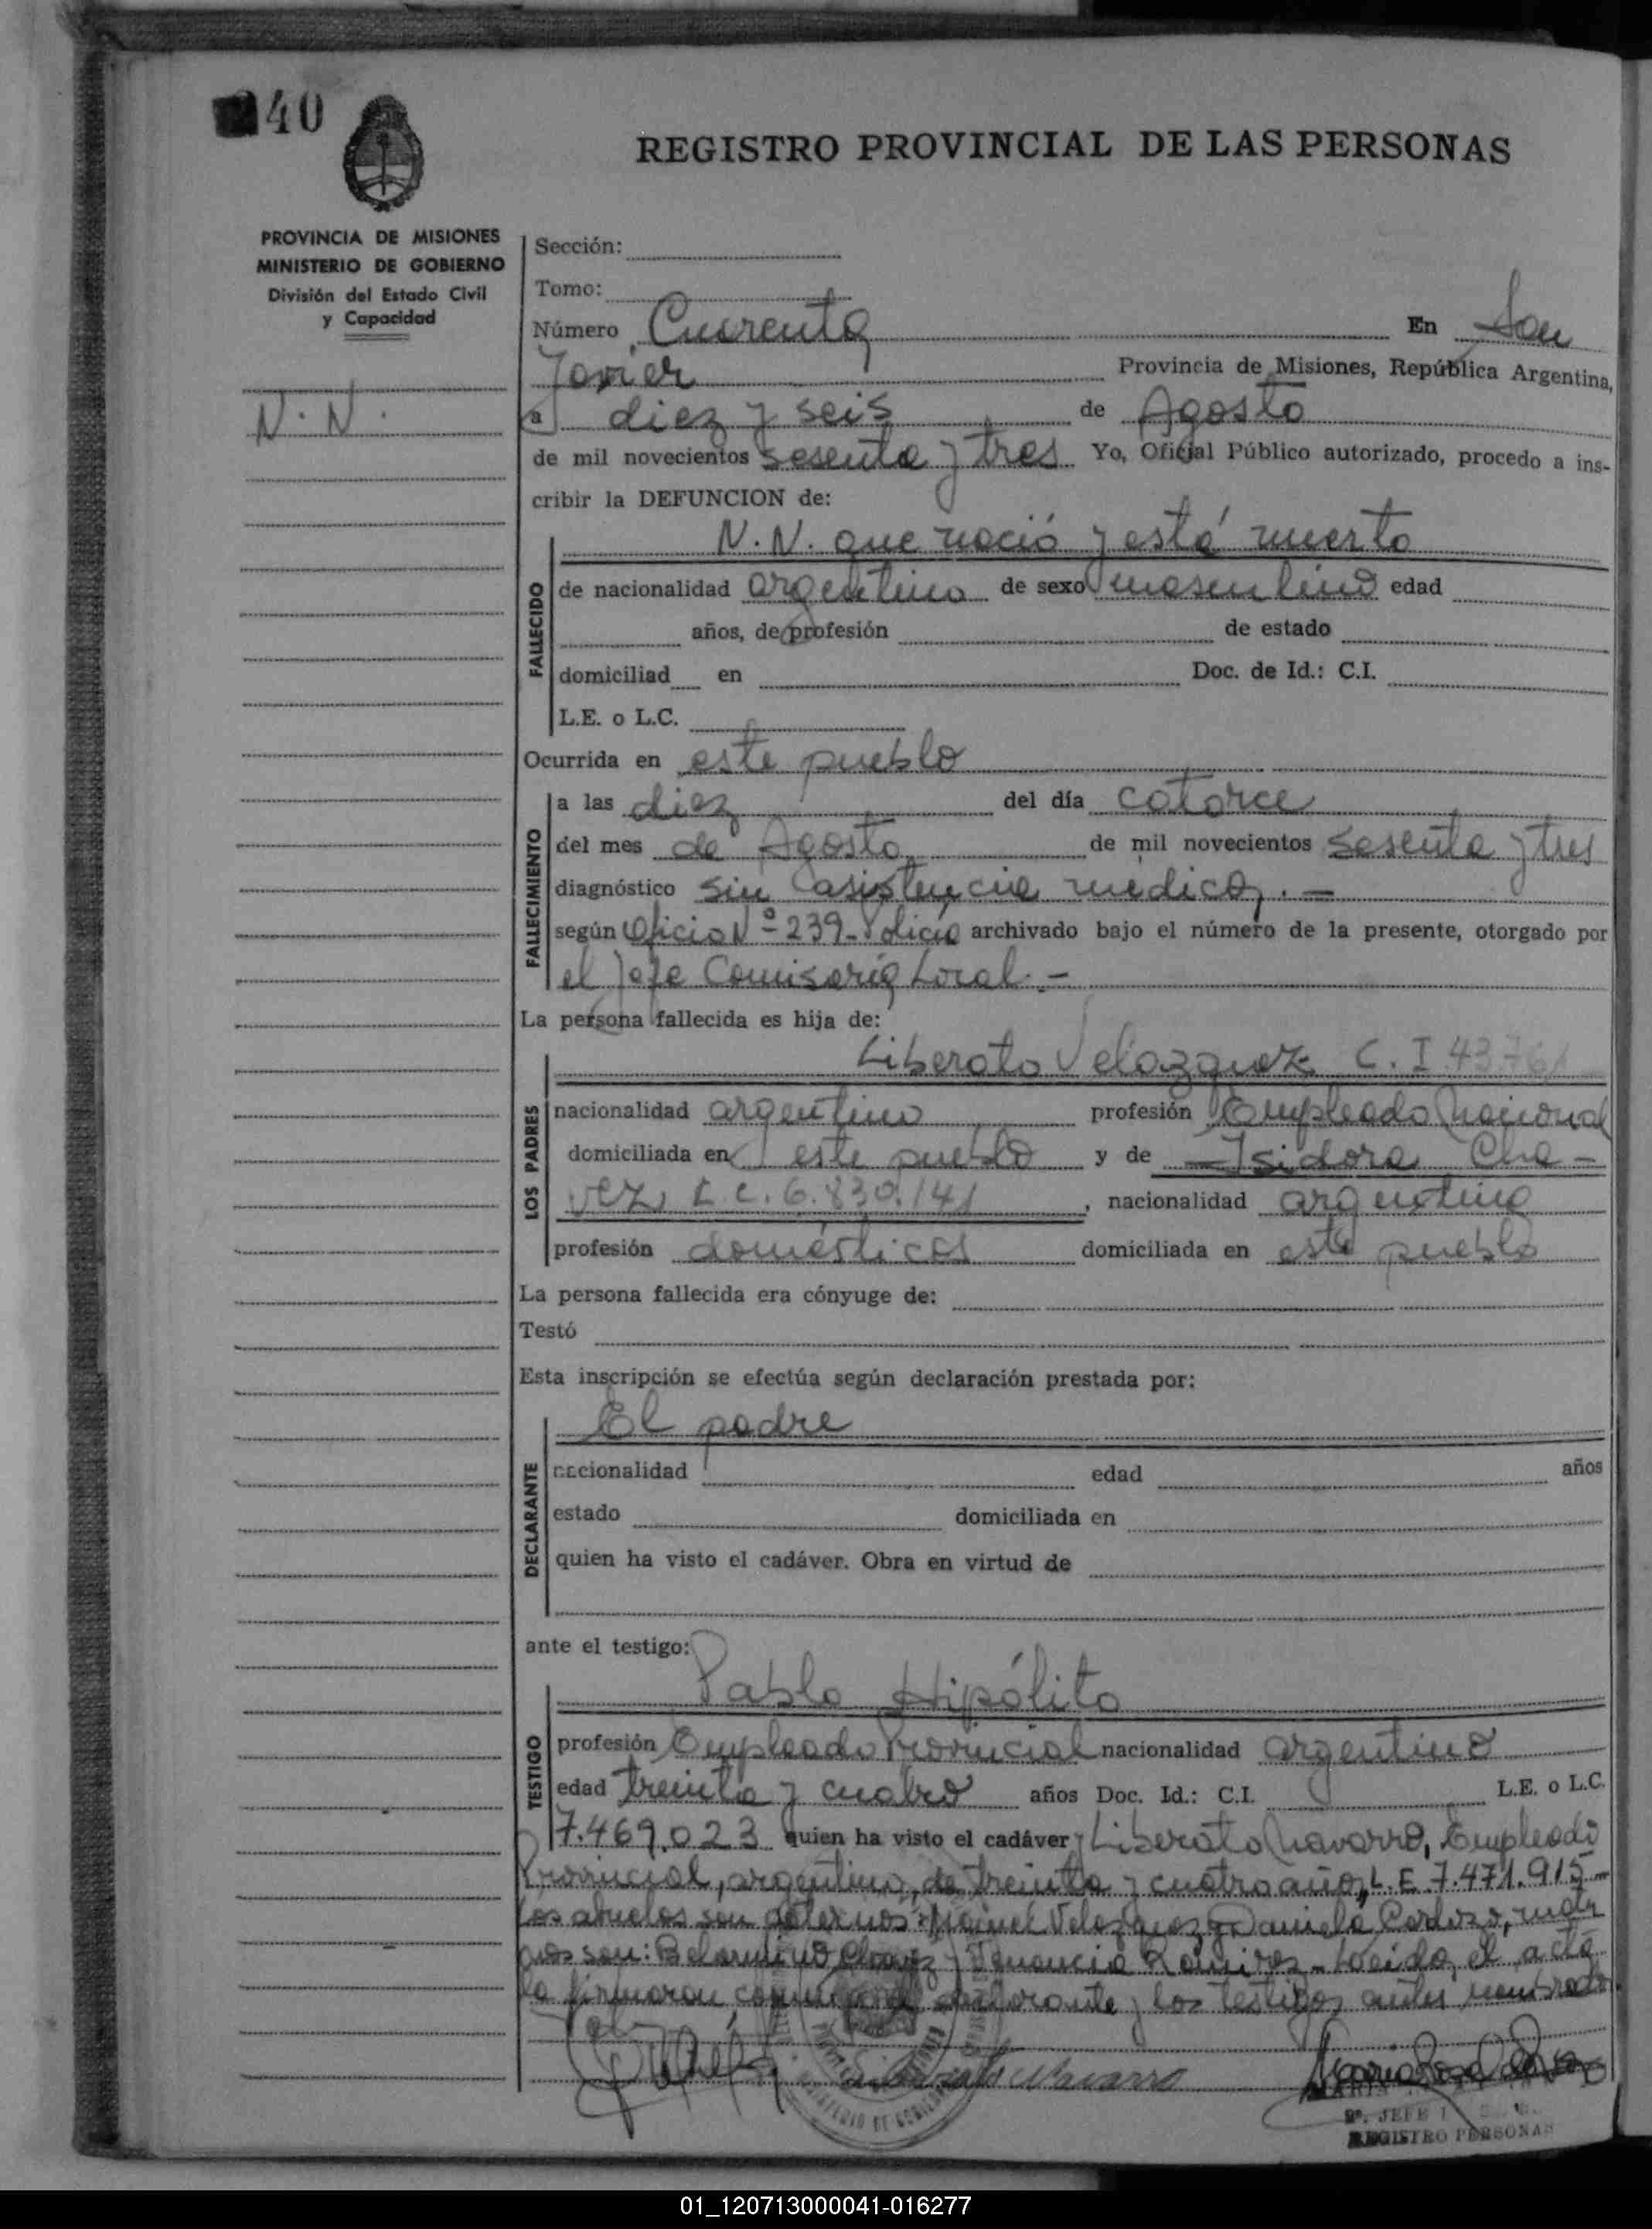 40
REGISTRO PROVINCIAL DE LAS PERSONAS
PROVINCIA DE MISIONES
MINISTERIO DE GOBIERNO
División del Estado Civil
y Capacidad
N. N.
Sección:
Tomo:
Número Cuarenta En San
Javier Provincia de Misiones, República Argentina,
a diez y seis de Agosto
de mil novecientos sesenta y tres Yo, Oficial Público autorizado, procedo a ins-
cribir la DEFUNCION de:
N.N. que nació y está muerto
FALLECIDO
de nacionalidad argentino de sexo masculino edad
años, de profesión de estado
domiciliad en Doc. de Id.: C.I.
L.E. o L.C.
Ocurrida en este pueblo
FALLECIMIENTO
a las diez del día catorce
del mes de Agosto de mil novecientos sesenta y tres
diagnóstico sin asistencia medica. -
según Oficio Nº 239- Policía archivado bajo el número de la presente, otorgado por
el Jefe Comisaría Local. -
La persona fallecida es hija de:
LOS PADRES
Liberato Velazquez C. I 43.761
nacionalidad argentino profesión Empleado Nacional
domiciliada en este pueblo y de - Isidora Cha-
vez L.C. 6.830.141, nacionalidad argentina
profesión domésticos domiciliada en este pueblo
La persona fallecida era cónyuge de:
Testó
Esta inscripción se efectúa según declaración prestada por:
DECLARANTE
El padre
nacionalidad edad años
estado domiciliada en
quien ha visto el cadáver. Obra en virtud de
ante el testigo:
TESTIGO
Pablo Hipólito
profesión Empleado Provincial nacionalidad argentino
edad treinta y cuatro años Doc. Id.: C.I. L.E. o L.C.
7.469.023 quien ha visto el cadáver y Liberato Navarro, Empleado
Provincial, argentino, de treinta y cuatro años, L.E 7.471.915-
Los abuelos son paternos: Manuel Velazquez y Daniela Cardozo, mater
nos son: Belarmino Chavez y Venancia Ramirez - Leida, el acta
la firmaron el declarante y los testigos antes nombrado
Liberato Navarro
JEFE
REGISTRO PERSONAS
01_120713000041-016277